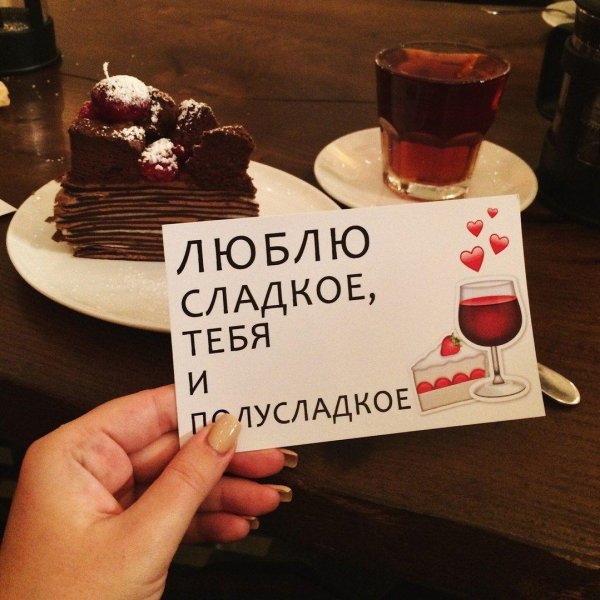 ЛЮБЛЮ
СЛАДКОЕ,
ТЕБЯ
И
ПОЛУСЛАДКОЕ